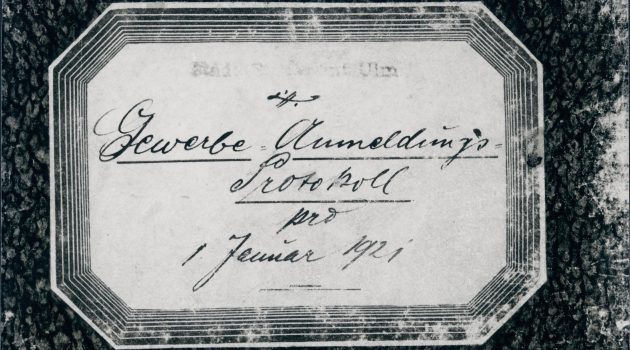 Ulm
Gewerbe-Anmeldungs-
Protokoll
pro
1 Januar 1921